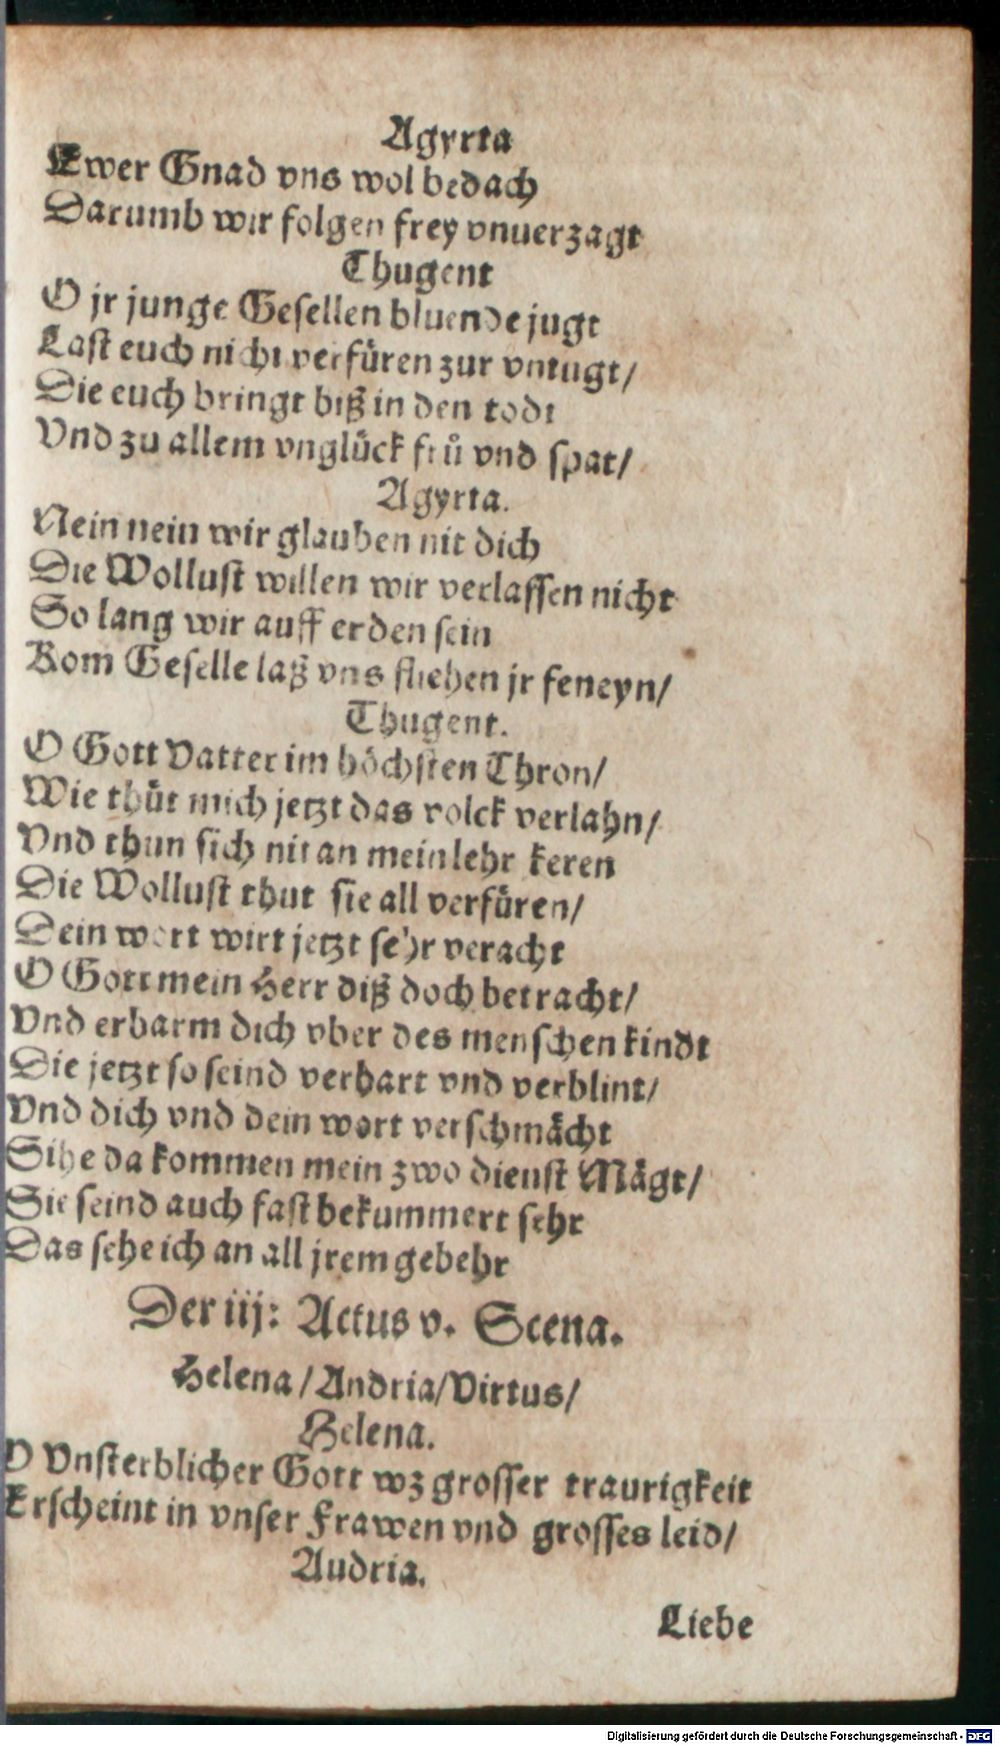 Agyrta
Ewer Gnad vns wol bedach
Darumb wir folgen frey vnuerzagt
Thugent
O jr junge Gesellen bluende jugt
Last euch nicht verfüren zur vntugt/
Die euch bringt biß in den todt
Vnd zu allem vnglück frů vnd spat/
Agyrta.
Nein nein wir glauben nit dich
Die Wollust willen wir verlassen nicht
So lang wir auff erden sein
Kom Geselle laß vns fliehen jr feneyn/
Thugent.
O Gott Vatter im höchsten Thron/
Wie thüt mich jetzt das volck verlahn/
Vnd thun sich nit an mein lehr keren
Die Wollust thut sie all verfüren/
Dein wort wirt jetzt sehr veracht
O Gott mein Herr diß doch betracht/
Vnd erbarm dich vber des menschen kindt
Die jetzt so seind verhart vnd verblint/
Vnd dich vnd dein wort verschmächt
Sihe da kommen mein zwo dienst Mägt/
Sie seind auch fast bekummert sehr
Das sehe ich an all jrem gebehr
Der iij: Actus v. Scena.
Helena/Andria/Virtus/
Helena.
O Vnsterblicher Gott wz grosser traurigkeit
Erscheint in vnser Frawen vnd grosses leid/
Audria.
Liebe
Digitalisierung gefördert durch die Deutsche Forschungsgemeinschaft - DFG